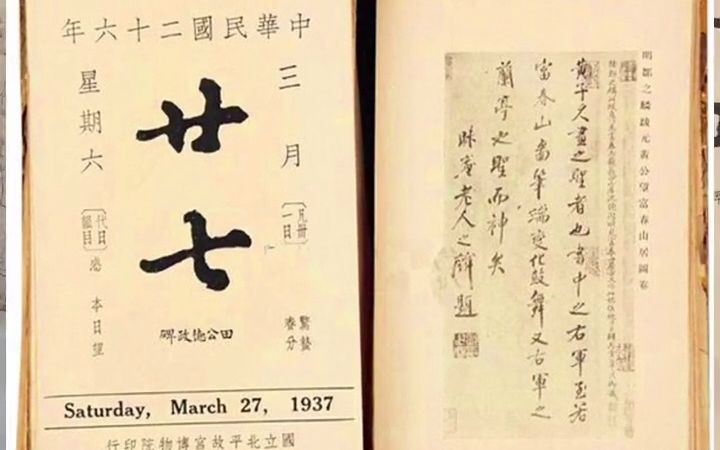 中華民國二十六年
三月
廿七
星期六
凡卅一日
代日韻目
本日望
驚蟄
春分
田公德政碑
Saturday, March 27, 1937
國立北平故宮博物院印行
明鄒之麟跋元黃公望富春山居圖卷
黃子久畫之聖者也書中之右軍至若
富春山圖筆端變化鼓舞又右軍之
蘭亭也聖而神矣
昧庵老人之麟題